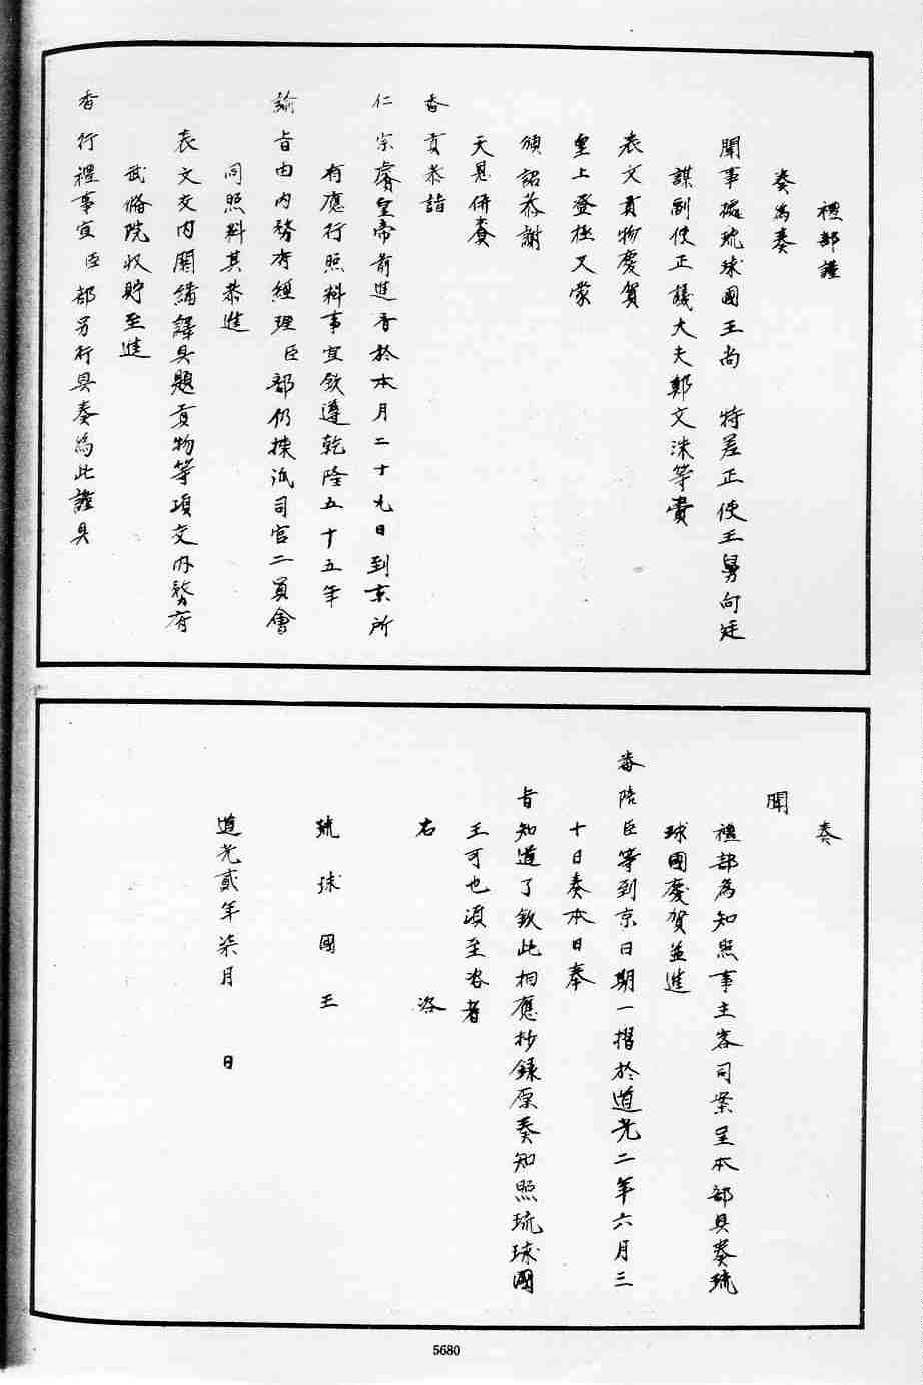 禮部謹
奏為奏
聞事據琉球國王尚　特差正使王舅向廷
謀副使正議大夫鄭文洙等賫
表文貢物慶賀
皇上登極又蒙
頒詔恭謝
天恩併賫
香貢恭詣
仁宗睿皇帝前進香於本月二十九日到京所
有應行照料事宜欽遵乾隆五十五年
諭旨由內務府經理臣部仍揀派司官二員會
同照料其恭進
表文交內閣繙譯具題貢物等項交內務府
武備院收貯至進
香行禮事宜臣部另行具奏為此謹具
奏
聞
禮部為知照事主客司案呈本部具奏琉
球國慶賀並進
香陪臣等到京日期一摺於道光二年六月三
十日奏本日奉
旨知道了欽此相應抄錄原奏知照琉球國
王可也須至咨者
右　咨
琉球國王
道光貳年柒月　日
5680